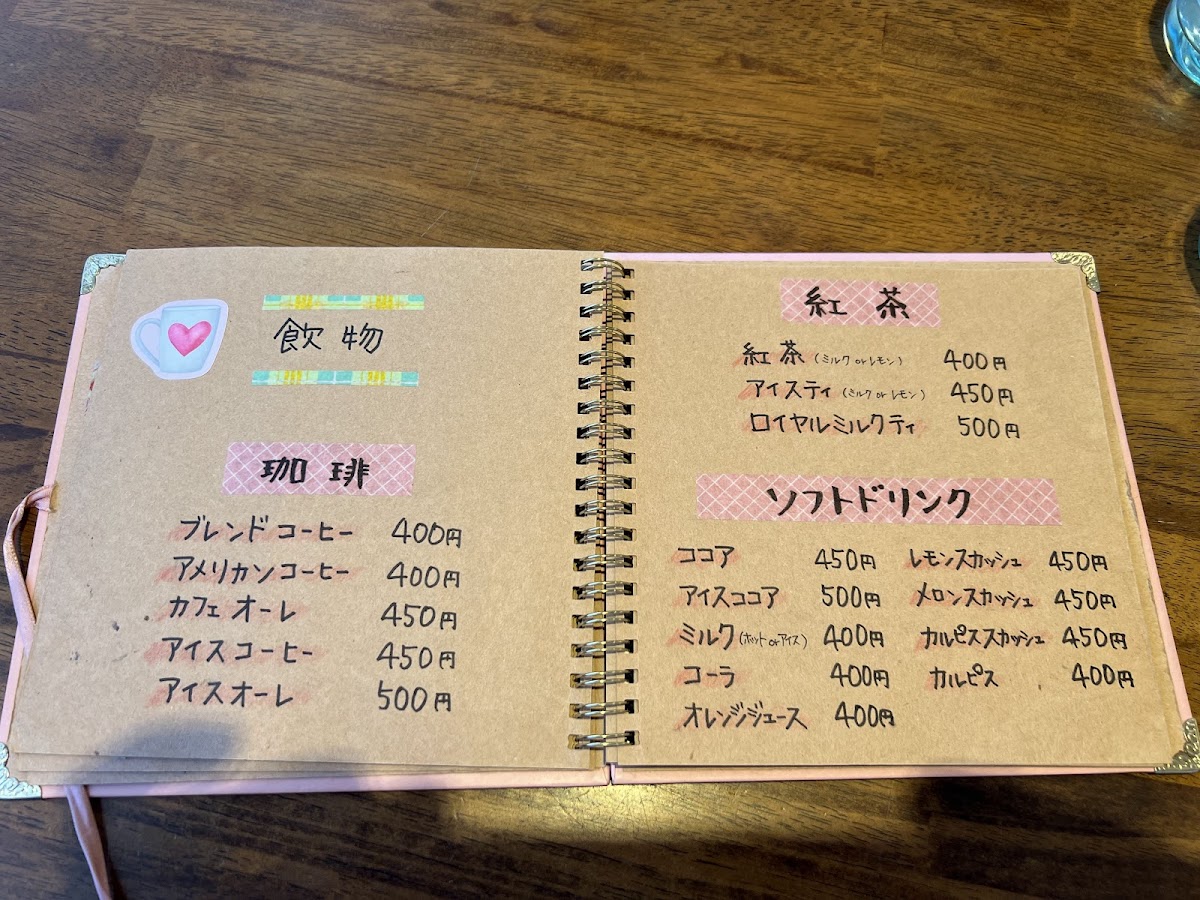 飲物
珈琲
ブレンドコーヒー 400円
アメリカンコーヒー 400円
カフェオーレ 450円
アイスコーヒー 450円
アイスオーレ 500円
紅茶
紅茶(ミルク or レモン) 400円
アイスティ(ミルク or レモン) 450円
ロイヤルミルクティ 500円
ソフトドリンク
ココア 450円
アイスココア 500円
ミルク(ホット or アイス) 400円
コーラ 400円
オレンジジュース 400円
レモンスカッシュ 450円
メロンスカッシュ 450円
カルピススカッシュ 450円
カルピス 400円